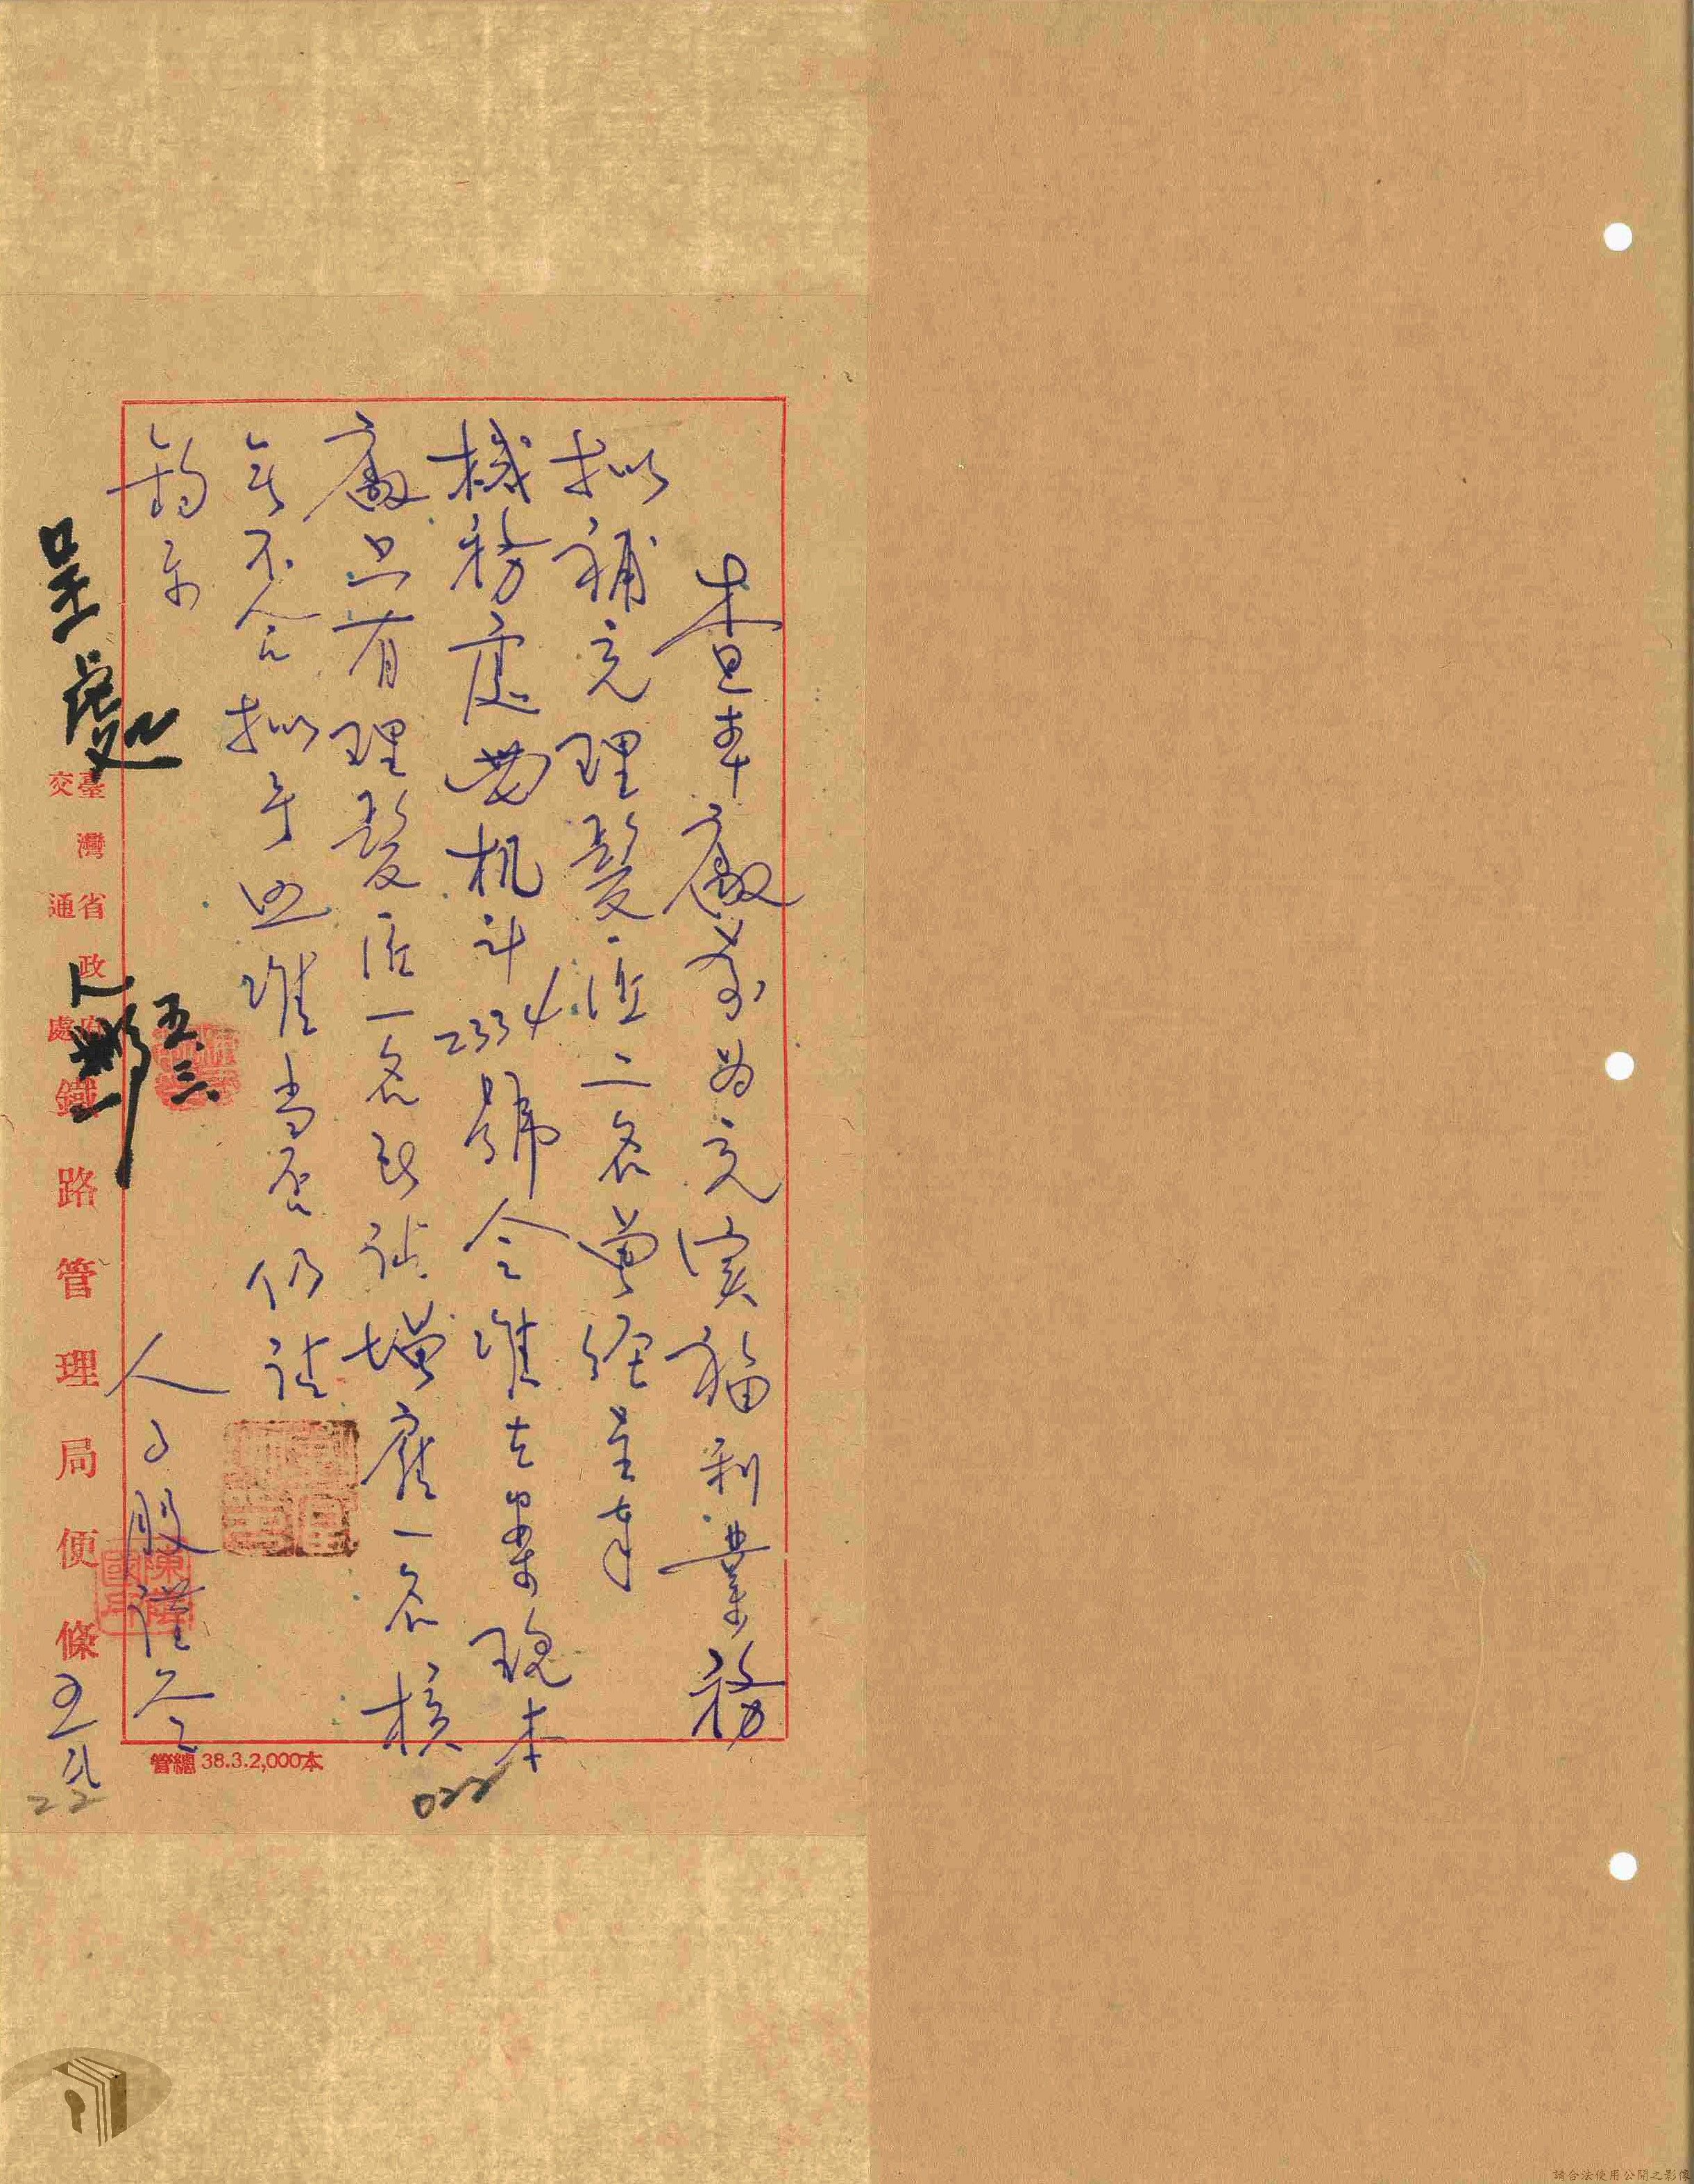 查車廠前為充實福利業務
擬補充理髮匠二名曾經呈奉
機務處勞机計2334號令准在案現本
廠只有理髮匠一名致請增雇一名核
無不合擬予照准當否仍請
鈞示
人事股謹簽
五
呈處
五、三
臺灣省政府
交通處
鐵路管理局便條
管總 38.3.2,000本
022
22
陳
國
請合法使用公開之影像